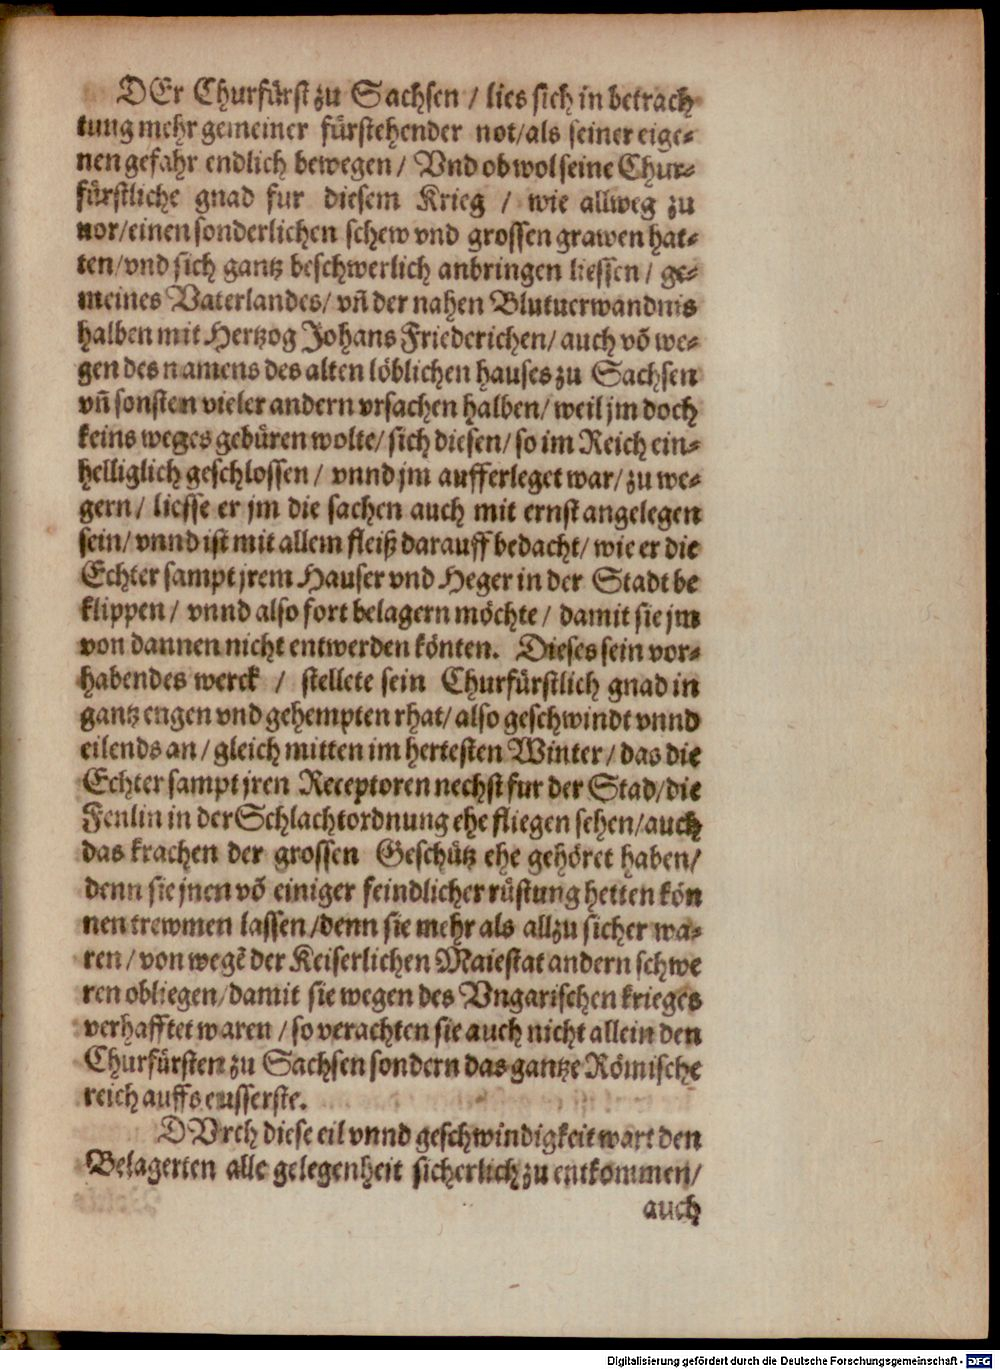 DEr Churfürst zu Sachsen / lies sich in betrach
tung mehr gemeiner fürstehender not/als seiner eige-
nen gefahr endlich bewegen / Vnd ob wol seine Chur-
fürstliche gnad fur diesem Krieg / wie allweg zu
uor/einen sonderlichen schew vnd grossen grawen hat-
ten/vnd sich gantz beschwerlich anbringen liessen / ge-
meines Vaterlandes/ vñ der nahen Blutuerwandnis
halben mit Hertzog Johans Friederichen/ auch võ we-
gen des namens des alten löblichen hauses zu Sachsen
vñ sonsten vieler andern vrsachen halben/ weil jm doch
keins weges gebüren wolte/ sich diesen/ so im Reich ein-
helliglich geschlossen / vnnd jm aufferleget war/ zu we-
gern / liesse er jm die sachen auch mit ernst angelegen
sein/ vnnd ist mit allem fleiß darauff bedacht/ wie er die
Echter sampt jrem Hauser vnd Heger in der Stadt be
klippen / vnnd also fort belagern möchte / damit sie jm
von dannen nicht entwerden könten. Dieses sein vor-
habendes werck / stellete sein Churfürstlich gnad in
gantz engen vnd gehempten rhat/ also geschwindt vnnd
eilends an / gleich mitten im hertesten Winter / das die
Echter sampt jren Receptoren nechst fur der Stad/die
Fenlin in der Schlachtordnung ehe fliegen sehen/auch
das krachen der grossen Geschütz ehe gehöret haben/
denn sie jnen võ einiger feindlicher rüstung hetten kön
nen trewmen lassen /denn sie mehr als allzu sicher wa-
ren / von wegẽ der Keiserlichen Maiestat andern schwe
ren obliegen/damit sie wegen des Vngarischen krieges
verhafftet waren / so verachten sie auch nicht allein den
Churfürsten zu Sachsen sondern das gantze Römische
reich auffs eusserste.
DVrch diese eil vnnd geschwindigkeit wart den
Belagerten alle gelegenheit sicherlich zu entkommen/
auch
Digitalisierung gefördert durch die Deutsche Forschungsgemeinschaft - DFG